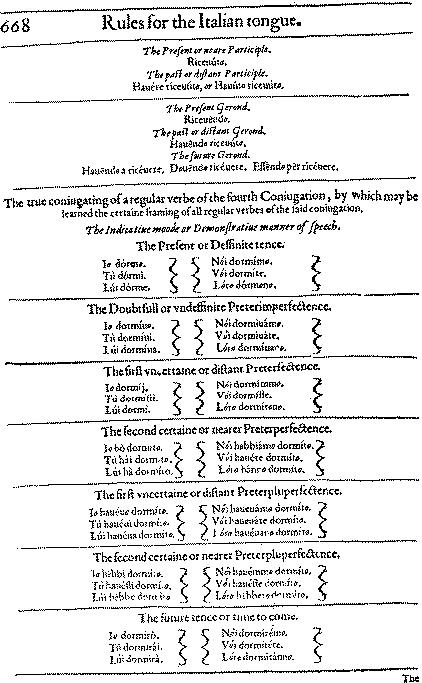 668 Rules for the Italian tongue.
The Present or neare Participle.
Riceuúto.
The past or distant Participle.
Hauére riceuúto, or Hauúto riceuúto.
The Present Gerond.
Riceuendo.
The past or distant Gerond.
Hauẽndo riceuúto.
The future Gerond.
Hauẽndo a ricéuere, Douẽndo ricéuere. Essẽndo per ricéuere.
The true coniugating of a regular verbe of the fourth Coniugation, by which may be
learned the certaine framing of all regular verbes of the said coniugation.
The Indicatiue moode or Demonstratiue manner of speech.
The Present or Deffinite tence.
Io dórmo. Nói dormímo.
Tù dórmi. Vói dormíte.
Lúi dórme. Lóro dórmono.
The Doubtfull or vndeffinite Preterimperfectence.
Io dormíuo. Nói dormiuámo.
Tù dormíui. Vói dormiuáte.
Lúi dormíua. Lóro dormíuano.
The first vncertaine or distant Preterfectence.
Io dormíj. Nói dormímmo.
Tù dormísti. Vói dormíste.
Lúi dormì. Lóro dormírono.
The second certaine or nearer Preterperfectence.
Io hò dormíto. Nói habbiámo dormíto.
Tù hái dormíto. Vói hauéte dormíto.
Lúi hà dormíto. Lóro hánno dormíto.
The first vncertaine or distant Preterpluperfectence.
Io hauéuo dormíto. Nói haueuámo dormíto.
Tù hauéui dormíto. Vói haueuáte dormíto.
Lúi hauéua dormíto. Lóro hauéuano dormíto.
The second certaine or nearer Preterpluperfectence.
Io hébbi dormíto. Nói hauémmo dormíto.
Tù hauésti dormíto. Vói hauéste dormíto.
Lúi hébbe dormíto. Lóro hébbero dormíto.
The future tence or time to come.
Io dormirò. Nói dormirémo.
Tù dormirái. Vói dormiréte.
Lúi dormirà. Lóro dormiránno.
The